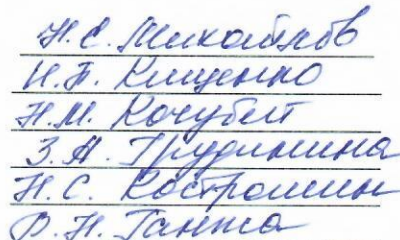 Н.С. Михайлов
И.П. Кищенко
Н.М. Кочубей
З.А. Грудинина
Н.С. Костромин
В.Н. Ганжа